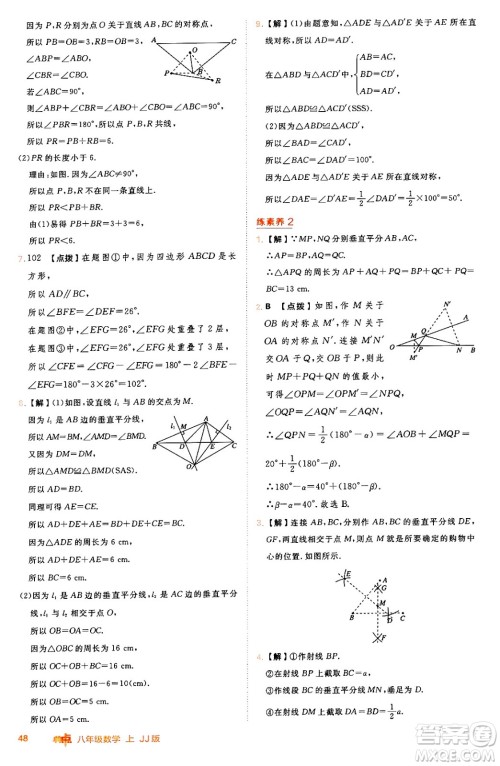 因为 P, R 分别为点 O 关于直线 AB, BC 的对称点,
所以 PB=OB=3, RB=OB=3.
所以 PR=6.
若∠ABC=90°,
则∠ABP+∠CBR=∠ABO+∠CBO=∠ABC=90°,
所以∠PBR=180°, 所以点 P, B, R 共线,
所以 PR=PB+RB=6.
(2) PR 的长度小于 6.
因为∠ABC≠90°,
所以点 P, B, R 不在同一条直线上,
所以 PR<PB+BR.
由(1)易得 PB+BR=3+3=6,
所以 PR<6.
102 【点拨】在题图①中, 因为四边形 ABCD 是长
方形,
所以 AD∥BC, 所以∠BFE=∠DEF=26°,
在题图②中, ∠EFG=26°, ∠EFG 处重叠了 2 层,
在题图③中, ∠EFG=26°, ∠EFG 处重叠了 3 层,
所以∠CFE=∠CFG-∠EFG=180°-2∠BFE-
∠EFG=180°-3×26°=102°.
8. 【解】(1)如图, 设直线 l₁ 与 AB 边的交点为 M.
因为 l₁ 是 AB 边的垂直平
分线, 所以 AM=BM.
又因为 DM=DM,
所以△AMD≌△BMD(SAS).
所以 AD=BD.
同理可得 AE=CE.
所以 AD+AE+DE=BD+CE+DE=BC.
因为△ADE 的周长为 6 cm,
所以 AD+DE+AE=6 cm.
所以 BC=6 cm.
(2)因为 l₁ 是 AB 边的垂直平分线, l₂ 是 AC 边的垂直平分
线, l₁ 与 l₂ 相交于点 O,
所以 OB=OA=OC.
因为△OBC 的周长为 16 cm,
所以 OB+OC+BC=16 cm.
又因为 BC=6 cm,
所以 OB+OC=10 cm.
所以 OA=OB=OC=5 cm.
48 点 八年级数学 上 JJ版
9. 【解】(1)由题意知, △ADE 与△AD′E 关于直线 AE 成轴
对称, 所以 AD=AD′.
在△ABD 与△ACD′中, { AB=AC,
BD=CD′,
AD=AD′,
所以△ABD≌△ACD′(SSS).
(2)因为△ABD≌△ACD′, 所以∠BAD=∠CAD′,
所以∠BAC=∠DAD′=100°,
因为△ADE 与△AD′E 关于直线 AE 成轴对称,
所以∠DAE=∠D′AE=1/2∠DAD′=1/2×100°=50°.
练素养 2
1. 【解】∵MP, NQ 分别垂直平分 AB, AC,
∴AP=BP, AQ=CQ.
∴△APQ 的周长为 AP+PQ+AQ=BP+PQ+CQ=
BC=13 cm.
2. B 【点拨】如图, 作 M 关于
OB 的对称点 M′, N 关于 OA
的对称点 N′, 连接 M′N′
交 OA 于 Q, 交 OB 于 P,
此时 MP+PQ+QN 的值最小,
易得∠OPM=∠OPM′=∠NPQ,
∠OQP=∠AQN′=∠AQN,
∴∠QPN=1/2(180°-α)=∠AOB+∠MQP=
20°+1/2(180°-β).
∴1/2(180°-α)=20°+1/2(180°-β).
∴β-α=40°. 故选 B.
3. 【解】连接 AB, BC, 作线段 AB, BC 的垂直平分线 DE,
GF, 两直线交于点 M, 则点 M 就是所要确定的购物中
心的位置. 如图所示.
4. 【解】①作射线 BP.
②在射线 BP 上截取 BC=a,
③作射线 BM, 在射线 BM 上截取 AB=a.